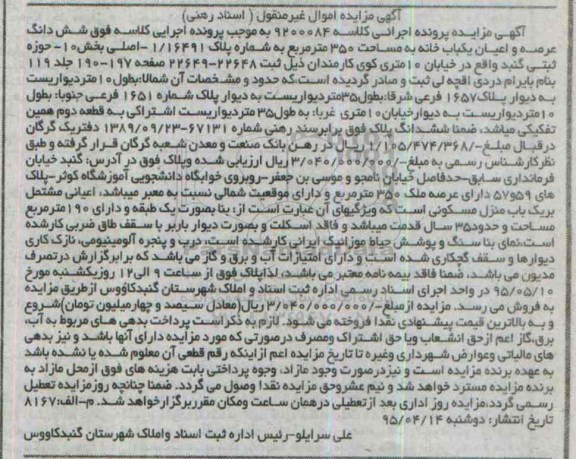 آگهی مزایده اموال غیرمنقول ( اسناد رهنی)
آگهی مزایـده پرونده اجرائـی کلاسـه ۹۲۰۰۰۸۴ به موجب پرونده اجرایی کلاسه فوق شش دانگ
عرصـه و اعیـان یکباب خانه به مساحت ۳۵۰ مترمربع به شماره پلاک ۱/۱۶۴۹۱ -اصلـی بخش۱۰- حوزه
ثبتـی گنبد واقع در خیابان ۱۰متری کوی کارمندان ذیل ثبت ۲۲۶۴۸-۲۲۶۴۹ صفحه ۱۹۷-۱۹۰ جلد ۱۱۹
بنام بایرام دردی اقچه لی ثبت و صادر گردیده است.که حدود و مشخصات آن شمالا:بطول۱۰متردیواریست
به دیوار پـلاک۱۶۵۷ فرعی شرقا:بطول۳۵متردیواریسـت به دیوار پلاک شماره ۱۶۵۱ فرعـی جنوبا: بطول
۱۰متردیواریسـت به دیوارخیابان۱۰متری غربا: به طول۳۵ متردیواریسـت اشتراکی به قطعه دوم همین
تفکیکی میباشد، ضمنا ششدانگ پلاک فوق برابرسند رهنی شماره ۶۷۱۳۱-۱۳۸۹/۰۹/۲۳ دفتریک گرگان
درقبال مبلغ-/۱/۱۰۵/۴۷۴/۳۶۸ ریال در رهـن بانک صنعت و معدن شـعبه گرگان قـرار گرفته و طبق
نظرکارشناس رسمی به مبلغ-/۳/۰۴۰/۰۰۰/۰۰۰ ریال ارزیابی شده وپلاک فوق در آدرس: گنبد خیابان
فرمانداری سابق-حدفاصل خیابان نامجو و موسی بن جعفر-روبروی خوابگاه دانشجویی آموزشگاه کوثر-پلاک
های ۵۹و۵۷ دارای عرصه ملک ۳۵۰ مترمربع و دارای موقعیت شمالی نسبت به معبر میباشد، اعیانی مشتمل
بریک باب منزل مسکونی است که ویژگیهای آن عبارت است از: بنا بصورت یک طبقه و دارای ۱۹۰مترمربع
مساحت و حدود۳۵ سال قدمت میباشد و فاقد اسکلت و بصورت دیوار باربر با سقف طاق ضربی کارشده
است،نمای بنا سنگ و پوشش حیاط موزائیک ایرانی کارشده است، درب و پنجره آلومینیومی، نازک کاری
دیوارها و سقف گچکاری شده است و دارای امتیازات آب و برق و گاز می باشد که برابرگزارش درتصرف
مدیون می باشد، ضمنا فاقد بیمه نامه معتبر می باشد، لذاپلاک فوق از ساعت ۹ الی۱۲ روزیکشنبه مورخ
۹۵/۰۵/۱۰ در واحد اجرای اسناد رسمی اداره ثبت اسناد و املاک شهرستان گنبدکاووس ازطریق مزایده
به فروش می رسد. مزایده ازمبلغ-/۳/۰۴۰/۰۰۰/۰۰۰ ریال(معادل سیصد و چهارمیلیون تومان)شروع
و به بالاترین قیمت پیشنهادی نقدا فروخته می شود. لازم به ذکراست پرداخت بدهی های مربوط به آب،
برق،گاز اعم ازحق انشـعاب ویا حق اشتراک ومصرف درصورتی که مورد مزایده دارای آنها باشد و نیز بدهی
های مالیاتی وعوارض شهرداری وغیره تا تاریخ مزایده اعم ازاینکه رقم قطعی آن معلوم شده یا نشده باشد
به عهده برنده مزایده است و نیزدرصورت وجود مازاد، وجوه پرداختی بابت هزینه های فوق ازمحل مازاد به
برنده مزایده مسترد خواهد شد و نیم عشروحق مزایده نقدا وصول می گردد. ضمنا چنانچه روزمزایده تعطیل
رسمی گردد،مزایده روز اداری بعد ازتعطیلی درهمان ساعت ومکان مقرربرگزارخواهد شد. م-الف:۸۱۶۷
تاریخ انتشار: دوشنبه ۹۵/۰۴/۱۴
علی سرایلو-رئیس اداره ثبت اسناد واملاک شهرستان گنبدکاووس